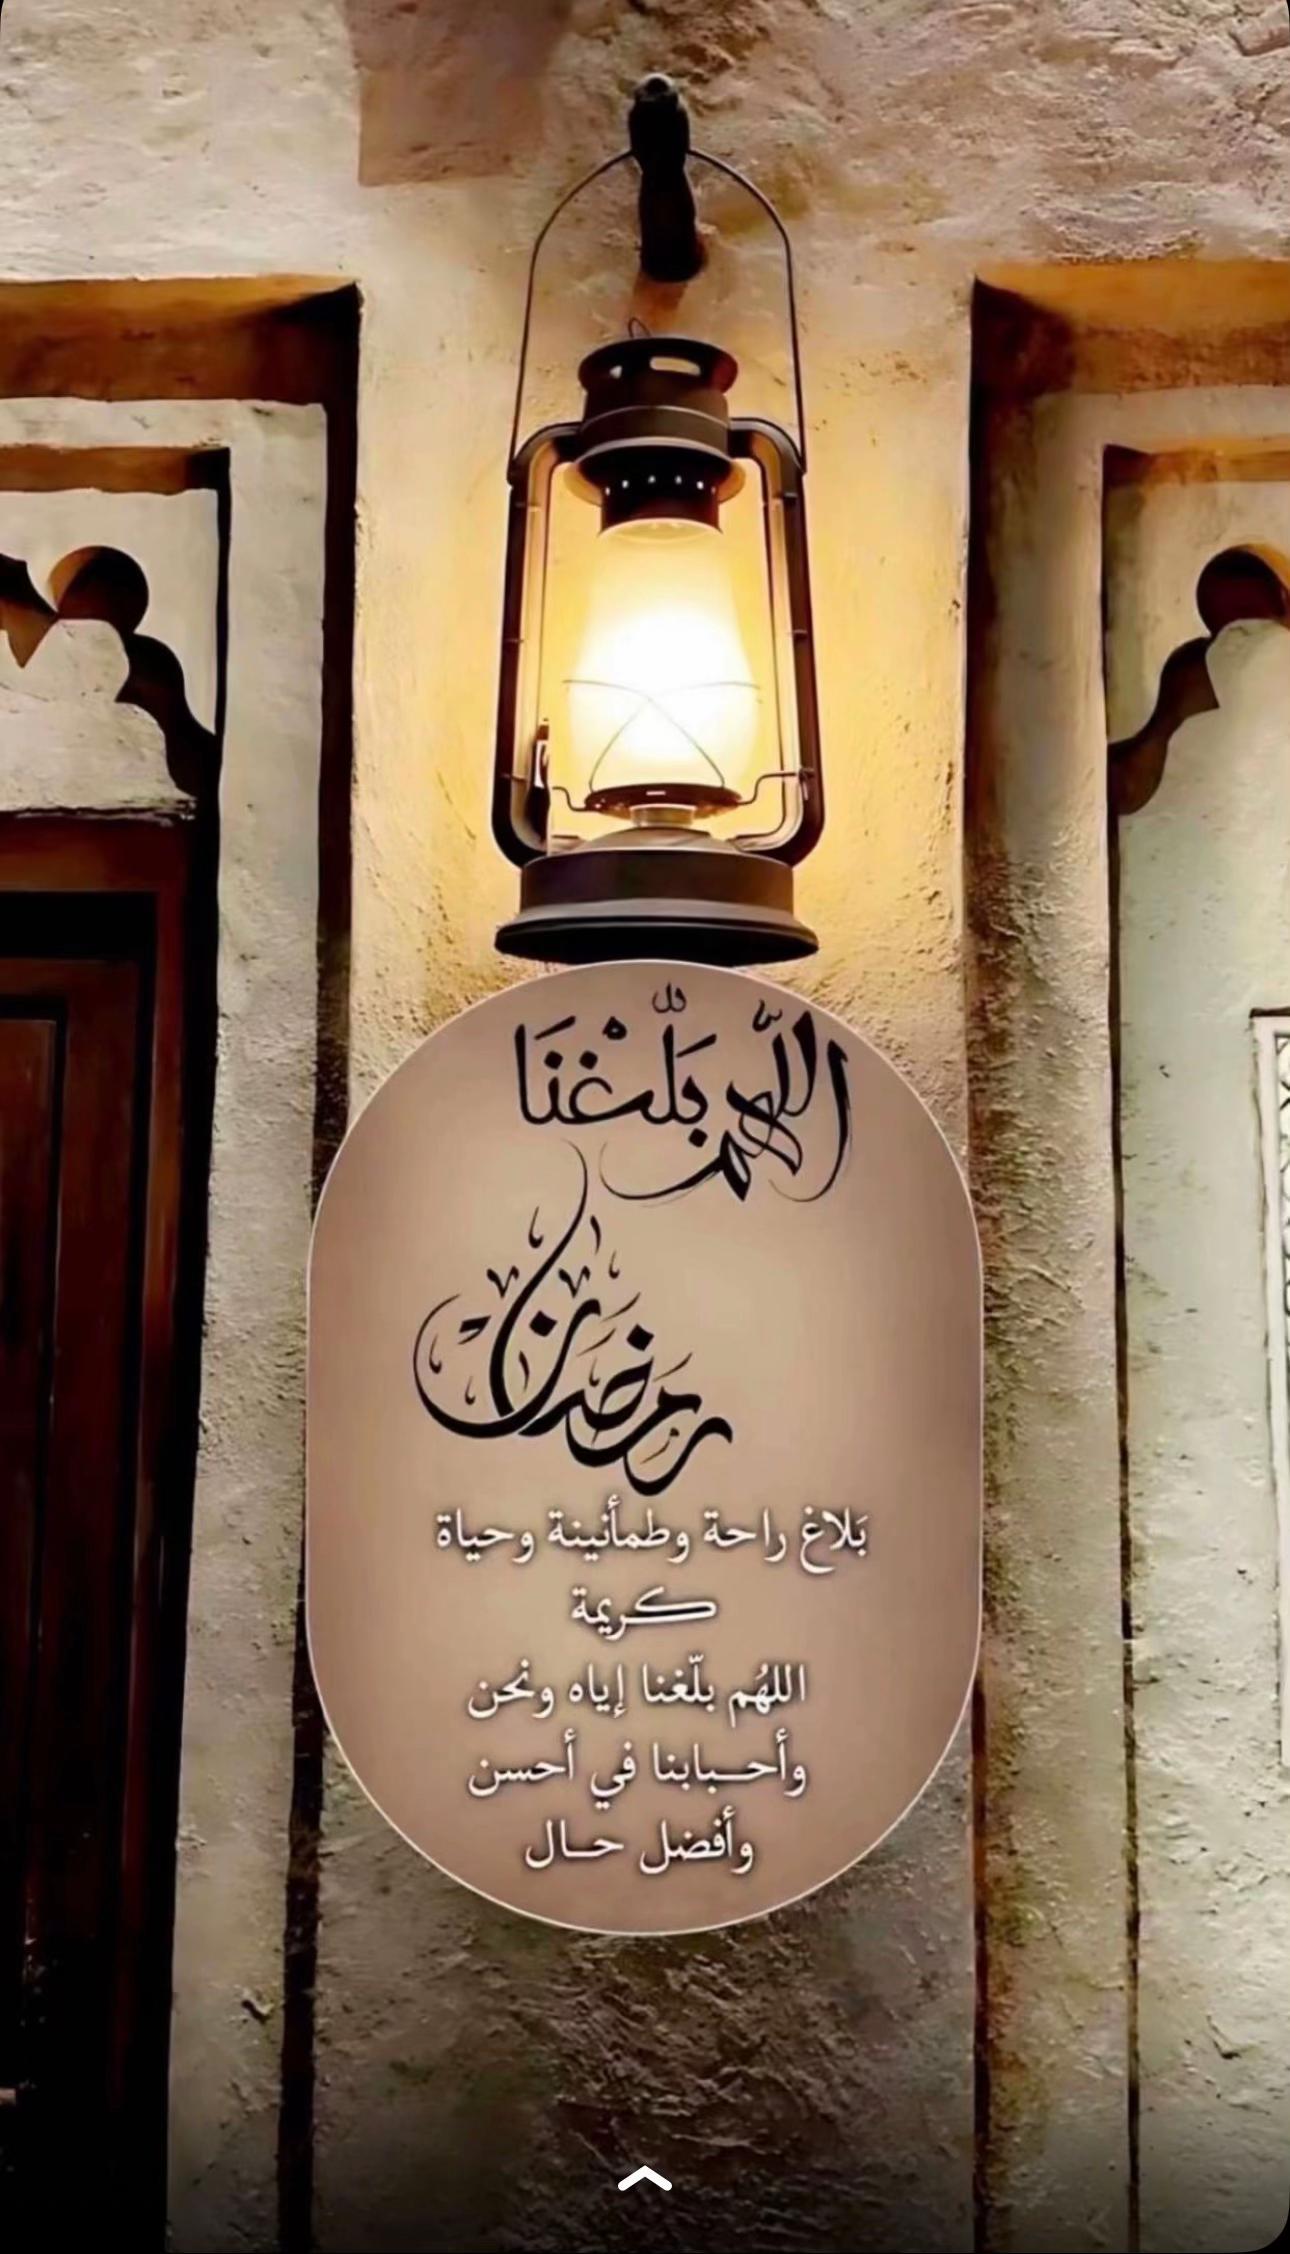 اللّهم بَلّغْنَا
رمضان
بَلاغ راحة وطمأنينة وحياة
كريمة
اللهُم بلّغنا إياه ونحن
وأحبابنا في أحسن
وأفضل حال